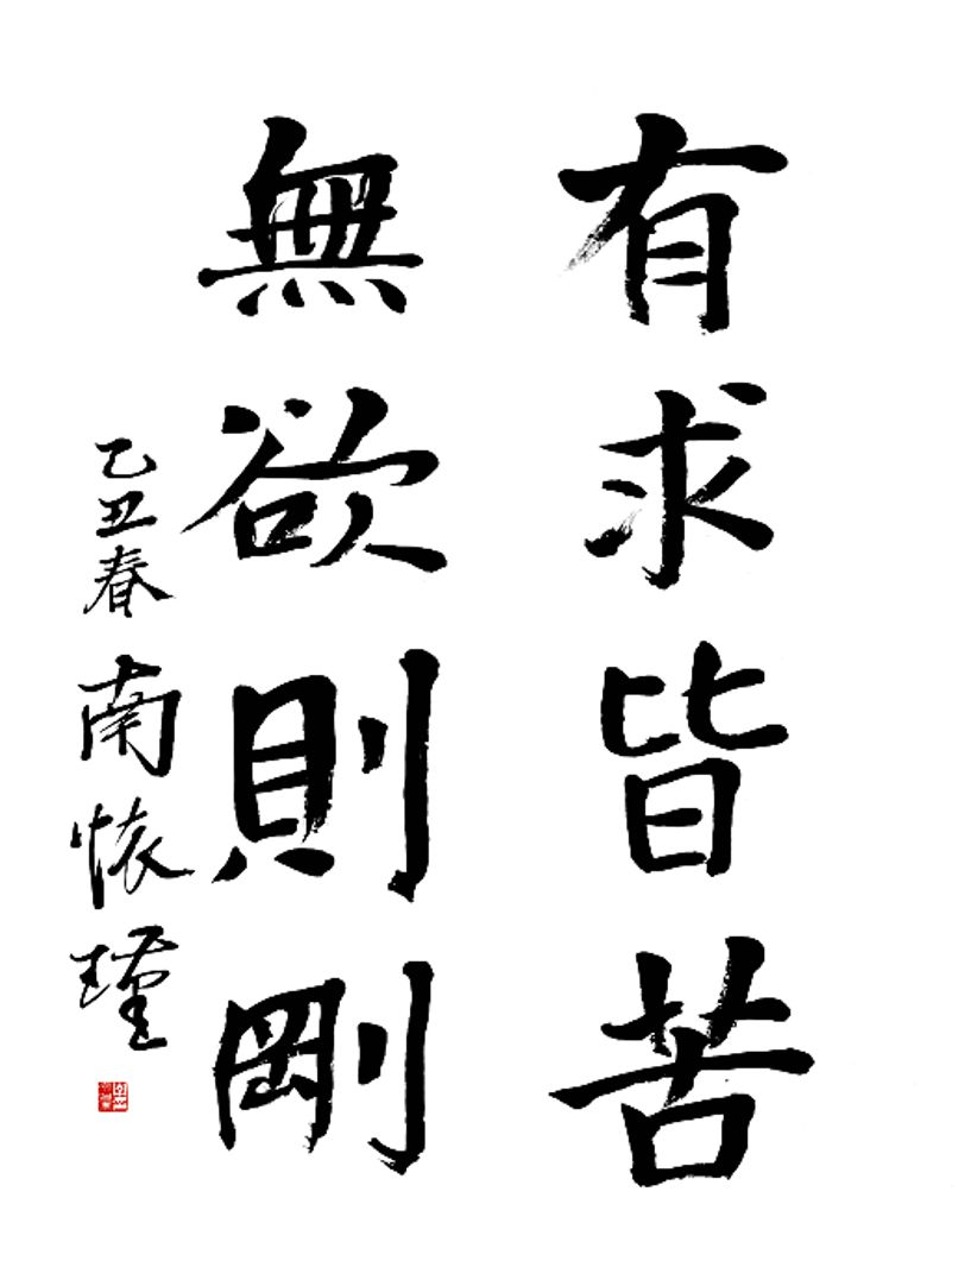 有求皆苦
無欲則剛
乙丑春 南懷瑾